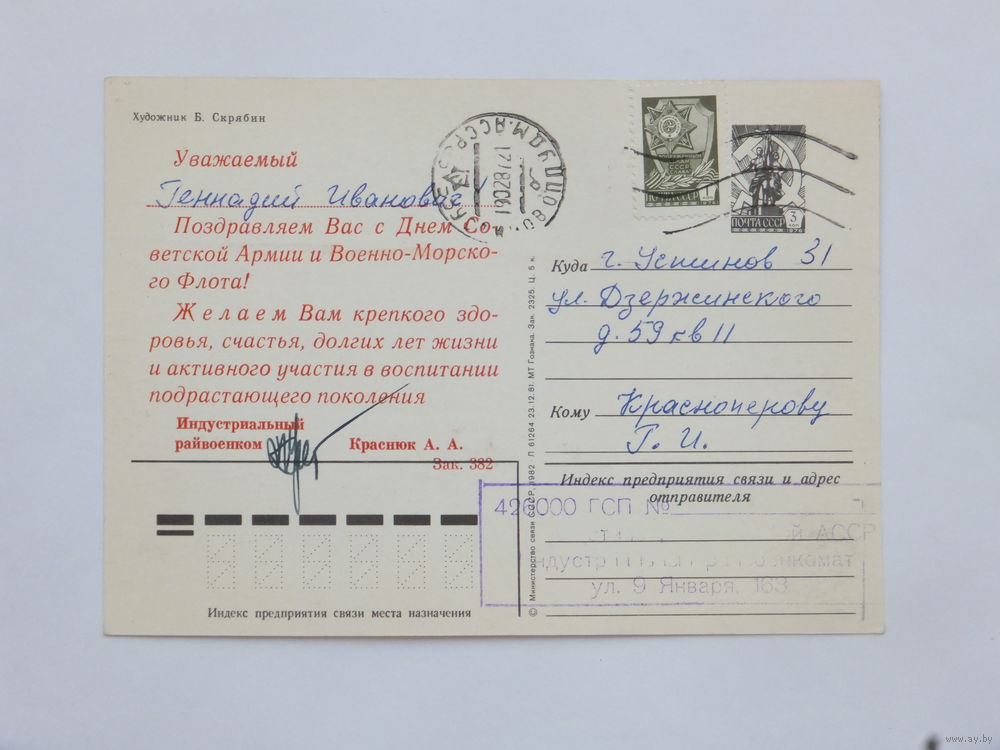 Художник Б. Скрябин
Уважаемый
Геннадий Иванович!
Поздравляем Вас с Днем Со-
ветской Армии и Военно-Морско-
го Флота!
Желаем Вам крепкого здо-
ровья, счастья, долгих лет жизни
и активного участия в воспитании
подрастающего поколения
Индустриальный
райвоенком
Краснюк А. А.
Зак. 382
Индекс предприятия связи места назначения
© Министерство связи СССР, 1982. Л 61264. 23.12.81. МТ Гознака. Зак. 2325. Ц. 5 к.
УДМ. АССР
190287 17
СССР
1 коп
ПОЧТА СССР
3 коп
ПОЧТА СССР
1976
Куда г. Устинов 31
ул. Дзержинского
д. 59 кв 11
Кому Красноперову
Г. И.
Индекс предприятия связи и адрес
отправителя
426000 ГСП №
АССР
ул. 9 Января, 163
www.ay.by